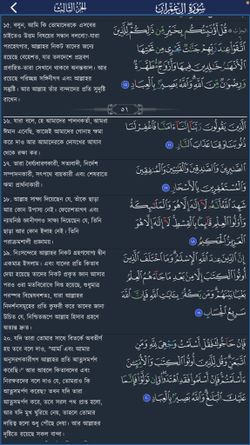 سُورَةُ آلِ عِمْرَان
الجزء الثالث
১৫. বলুন, আমি কি তোমাদেরকে এসবের
চাইতেও উত্তম বিষয়ের সন্ধান বলবো?-যারা
পরহেযগার, আল্লাহর নিকট তাদের জন্যে
রয়েছে বেহেশত, যার তলদেশে প্রস্রবণ
প্রবাহিত-তারা সেখানে থাকবে অনন্তকাল। আর
রয়েছে পরিচ্ছন্ন সঙ্গিনীগণ এবং আল্লাহর
সন্তুষ্টি। আর আল্লাহ তাঁর বান্দাদের প্রতি সুদৃষ্টি
রাখেন।
قُلْ أَؤُنَبِّئُكُم بِخَيْرٍ مِّن ذَٰلِكُمْ لِلَّذِينَ
اتَّقَوْا عِندَ رَبِّهِمْ جَنَّاتٌ تَجْرِي مِن تَحْتِهَا
الْأَنْهَارُ خَالِدِينَ فِيهَا وَأَزْوَاجٌ مُّطَهَّرَةٌ
وَرِضْوَانٌ مِّنَ اللَّهِ وَاللَّهُ بَصِيرٌ بِالْعِبَادِ ١٥
٥١
১৬. যারা বলে, হে আমাদের পালনকর্তা, আমরা
ঈমান এনেছি, কাজেই আমাদের গোনাহ ক্ষমা
করে দাও আর আমাদেরকে দোযখের আযাব
থেকে রক্ষা কর।
الَّذِينَ يَقُولُونَ رَبَّنَا إِنَّنَا آمَنَّا فَاغْفِرْ لَنَا
ذُنُوبَنَا وَقِنَا عَذَابَ النَّارِ ١٦
১৭. তারা ধৈর্য্যধারণকারী, সত্যবাদী, নির্দেশ
সম্পাদনকারী, সৎপথে ব্যয়কারী এবং শেষরাতে
ক্ষমা প্রার্থনাকারী।
الصَّابِرِينَ وَالصَّادِقِينَ وَالْقَانِتِينَ وَالْمُنفِقِينَ
وَالْمُسْتَغْفِرِينَ بِالْأَسْحَارِ ١٧
১৮. আল্লাহ সাক্ষ্য দিয়েছেন যে, তাঁকে ছাড়া
আর কোন উপাস্য নেই। ফেরেশতাগণ এবং
ন্যায়নিষ্ঠ জ্ঞানীগণও সাক্ষ্য দিয়েছেন যে, তিনি
ছাড়া আর কোন ইলাহ নেই। তিনি
পরাক্রমশালী প্রজ্ঞাময়।
شَهِدَ اللَّهُ أَنَّهُ لَا إِلَٰهَ إِلَّا هُوَ وَالْمَلَائِكَةُ
وَأُولُو الْعِلْمِ قَائِمًا بِالْقِسْطِ لَا إِلَٰهَ إِلَّا هُوَ
الْعَزِيزُ الْحَكِيمُ ١٨
১৯. নিঃসন্দেহে আল্লাহর নিকট গ্রহণযোগ্য দ্বীন
একমাত্র ইসলাম। এবং যাদের প্রতি কিতাব
দেয়া হয়েছে তাদের নিকট প্রকৃত জ্ঞান আসার
পরও ওরা মতবিরোধে লিপ্ত হয়েছে, শুধুমাত্র
পরস্পর বিদ্বেষবশতঃ, যারা আল্লাহর
নিদর্শনসমূহের প্রতি কুফরী করে তাদের জানা
উচিত যে, নিশ্চিতরূপে আল্লাহ হিসাব গ্রহণে
অত্যন্ত দ্রুত।
إِنَّ الدِّينَ عِندَ اللَّهِ الْإِسْلَامُ وَمَا اخْتَلَفَ الَّذِينَ
أُوتُوا الْكِتَابَ إِلَّا مِن بَعْدِ مَا جَاءَهُمُ الْعِلْمُ
بَغْيًا بَيْنَهُمْ وَمَن يَكْفُرْ بِآيَاتِ اللَّهِ فَإِنَّ اللَّهَ
سَرِيعُ الْحِسَابِ ١٩
২০. যদি তারা তোমার সাথে বিতর্কে অবতীর্ণ
হয় তবে বলে দাও, "আমি এবং আমার
অনুসরণকারীগণ আল্লাহর প্রতি আত্নসমর্পণ
করেছি।" আর আহলে কিতাবদের এবং
নিরক্ষরদের বলে দাও যে, তোমরাও কি
আত্নসমর্পণ করেছ? তখন যদি তারা
আত্নসমর্পণ করে, তবে সরল পথ প্রাপ্ত হলো,
আর যদি মুখ ঘুরিয়ে নেয়, তাহলে তোমার
দায়িত্ব হলো শুধু পৌছে দেয়া। আর আল্লাহর
দৃষ্টিতে রয়েছে সকল বান্দা।
فَإِنْ حَاجُّوكَ فَقُلْ أَسْلَمْتُ وَجْهِيَ لِلَّهِ وَمَنِ
اتَّبَعَنِ وَقُل لِّلَّذِينَ أُوتُوا الْكِتَابَ وَالْأُمِّيِّينَ
أَأَسْلَمْتُمْ فَإِنْ أَسْلَمُوا فَقَدِ اهْتَدَوا وَّإِن تَوَلَّوْا فَإِنَّمَا
عَلَيْكَ الْبَلَاغُ وَاللَّهُ بَصِيرٌ بِالْعِبَادِ ٢٠